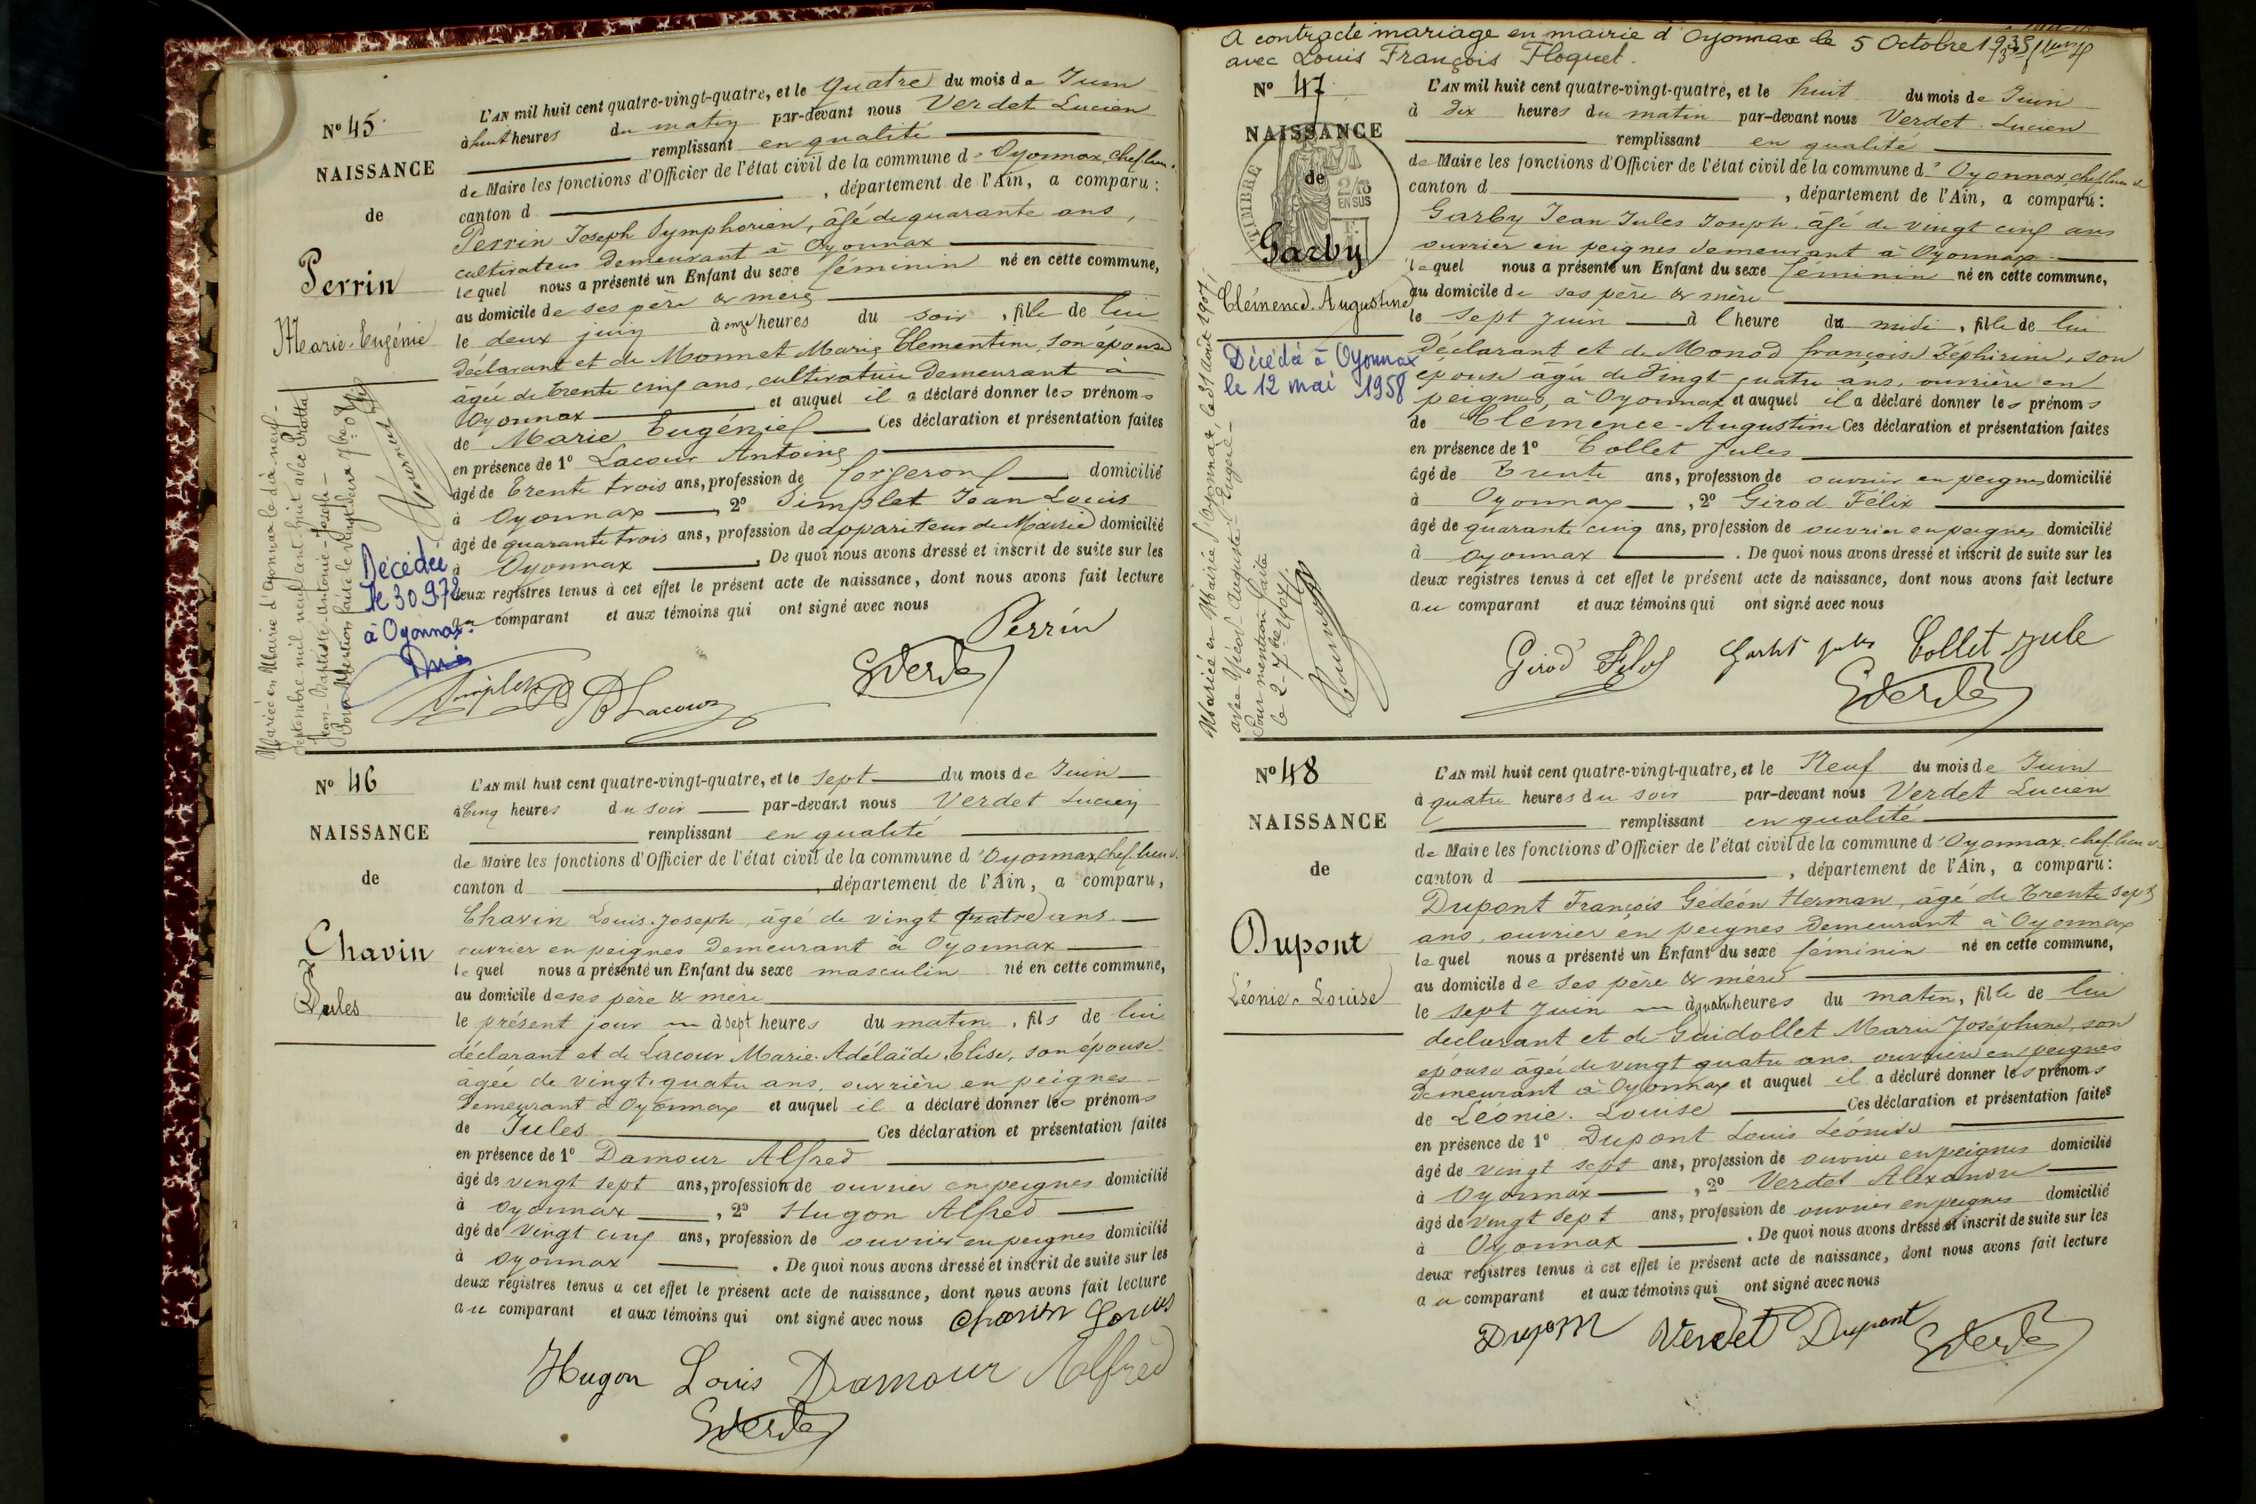 Nº 45
NAISSANCE
de
Perrin
Marie-Eugénie
Mariée en Mairie d'Oyonnax le dix-neuf
septembre mil neuf cent huit avec
Jean-Baptiste-Antonie-Joseph-
Décédée
le 30 9 72
à Oyonnax.
L'AN mil huit cent quatre-vingt-quatre, et le quatre du mois de Juin
à huit heures du matin par-devant nous Verdet Lucien
remplissant en qualité
de Maire les fonctions d'Officier de l'état civil de la commune d'Oyonnax, chef lieu
canton d , département de l'Ain, a comparu :
Perrin Joseph Symphorien, âgé de quarante ans,
cultivateur demeurant à Oyonnax
lequel nous a présenté un Enfant du sexe féminin né en cette commune,
au domicile de ses père & mère
le deux juin à onze heures du soir, fille de lui
déclarant et de Monnet Marie Clementine, son épouse
âgée de trente cinq ans, cultivatrice demeurant à
Oyonnax et auquel il a déclaré donner les prénoms
de Marie Eugénie Ces déclaration et présentation faites
en présence de 1º Lacour Antoine
âgé de trente trois ans, profession de forgeron domicilié
à Oyonnax, 2º Simplet Jean Louis
âgé de quarante trois ans, profession de appariteur de Mairie domicilié
à Oyonnax. De quoi nous avons dressé et inscrit de suite sur les
deux registres tenus à cet effet le présent acte de naissance, dont nous avons fait lecture
au comparant et aux témoins qui ont signé avec nous
Perrin
Simplet Lacour Verdet
Nº 46
NAISSANCE
de
Chavin
Jules
L'AN mil huit cent quatre-vingt-quatre, et le sept du mois de Juin
à Cinq heures du soir par-devant nous Verdet Lucien
remplissant en qualité
de Maire les fonctions d'Officier de l'état civil de la commune d'Oyonnax, chef lieu d
canton d , département de l'Ain, a comparu,
Chavin Louis-Joseph, âgé de vingt quatre ans
ouvrier en peignes demeurant à Oyonnax
lequel nous a présenté un Enfant du sexe masculin né en cette commune,
au domicile de ses père & mère
le présent jour à sept heures du matin, fils de lui
déclarant et de Lacour Marie-Adélaïde Elise, son épouse
âgée de vingt-quatre ans, ouvrière en peignes
demeurant à Oyonnax et auquel il a déclaré donner les prénoms
de Jules Ces déclaration et présentation faites
en présence de 1º Damour Alfred
âgé de vingt sept ans, profession de ouvrier en peignes domicilié
à Oyonnax, 2º Hugon Alfred
âgé de vingt cinq ans, profession de ouvrier en peignes domicilié
à Oyonnax. De quoi nous avons dressé et inscrit de suite sur les
deux registres tenus à cet effet le présent acte de naissance, dont nous avons fait lecture
au comparant et aux témoins qui ont signé avec nous Chavin Louis
Hugon Louis Damour Alfred
Verdet
A contracté mariage en mairie d'Oyonnax le 5 Octobre 1935
avec Louis François Floquet.
Nº 47
NAISSANCE
de
TIMBRE
2/10
EN SUS
Garby
Clémence-Augustine
Décédée à Oyonnax
le 12 mai 1958
Mariée en Mairie d'Oyonnax, le 31 août 1907
avec Auguste-Eugène-
Pour mention faite
le 2 7bre 1907.
L'AN mil huit cent quatre-vingt-quatre, et le huit du mois de Juin
à dix heures du matin par-devant nous Verdet Lucien
remplissant en qualité
de Maire les fonctions d'Officier de l'état civil de la commune d'Oyonnax, chef lieu de
canton d , département de l'Ain, a comparu :
Garby Jean Jules Joseph, âgé de vingt cinq ans
ouvrier en peignes demeurant à Oyonnax
lequel nous a présenté un Enfant du sexe féminin né en cette commune,
au domicile de ses père & mère
le sept juin à l heure du midi, fille de lui
déclarant et de Monod françoise Zéphirine, son
épouse âgée de vingt quatre ans, ouvrière en
peignes, à Oyonnax et auquel il a déclaré donner les prénoms
de Clémence-Augustine Ces déclaration et présentation faites
en présence de 1º Collet Jules
âgé de trente ans, profession de ouvrier en peignes domicilié
à Oyonnax, 2º Girod Félix
âgé de quarante cinq ans, profession de ouvrier en peignes domicilié
à Oyonnax. De quoi nous avons dressé et inscrit de suite sur les
deux registres tenus à cet effet le présent acte de naissance, dont nous avons fait lecture
au comparant et aux témoins qui ont signé avec nous
Girod Félix Garbi jules Collet Jule
Verdet
Nº 48
NAISSANCE
de
Dupont
Léonie-Louise
L'AN mil huit cent quatre-vingt-quatre, et le Neuf du mois de Juin
à quatre heures du soir par-devant nous Verdet Lucien
remplissant en qualité
de Maire les fonctions d'Officier de l'état civil de la commune d'Oyonnax, chef lieu de
canton d , département de l'Ain, a comparu :
Dupont François Gédéon Herman, âgé de trente sept
ans, ouvrier en peignes demeurant à Oyonnax
lequel nous a présenté un Enfant du sexe féminin né en cette commune,
au domicile de ses père & mère
le sept Juin à quatre heures du matin, fille de lui
déclarant et de Guidollet Marie Joséphine, son
épouse âgée de vingt quatre ans, ouvrière en peignes
demeurant à Oyonnax et auquel il a déclaré donner les prénoms
de Léonie-Louise Ces déclaration et présentation faites
en présence de 1º Dupont Louis Léonide
âgé de vingt sept ans, profession de ouvrier en peignes domicilié
à Oyonnax, 2º Verdet Alexandre
âgé de vingt sept ans, profession de ouvrier en peignes domicilié
à Oyonnax. De quoi nous avons dressé et inscrit de suite sur les
deux registres tenus à cet effet le présent acte de naissance, dont nous avons fait lecture
au comparant et aux témoins qui ont signé avec nous
Dupont Verdet Dupont Verdet